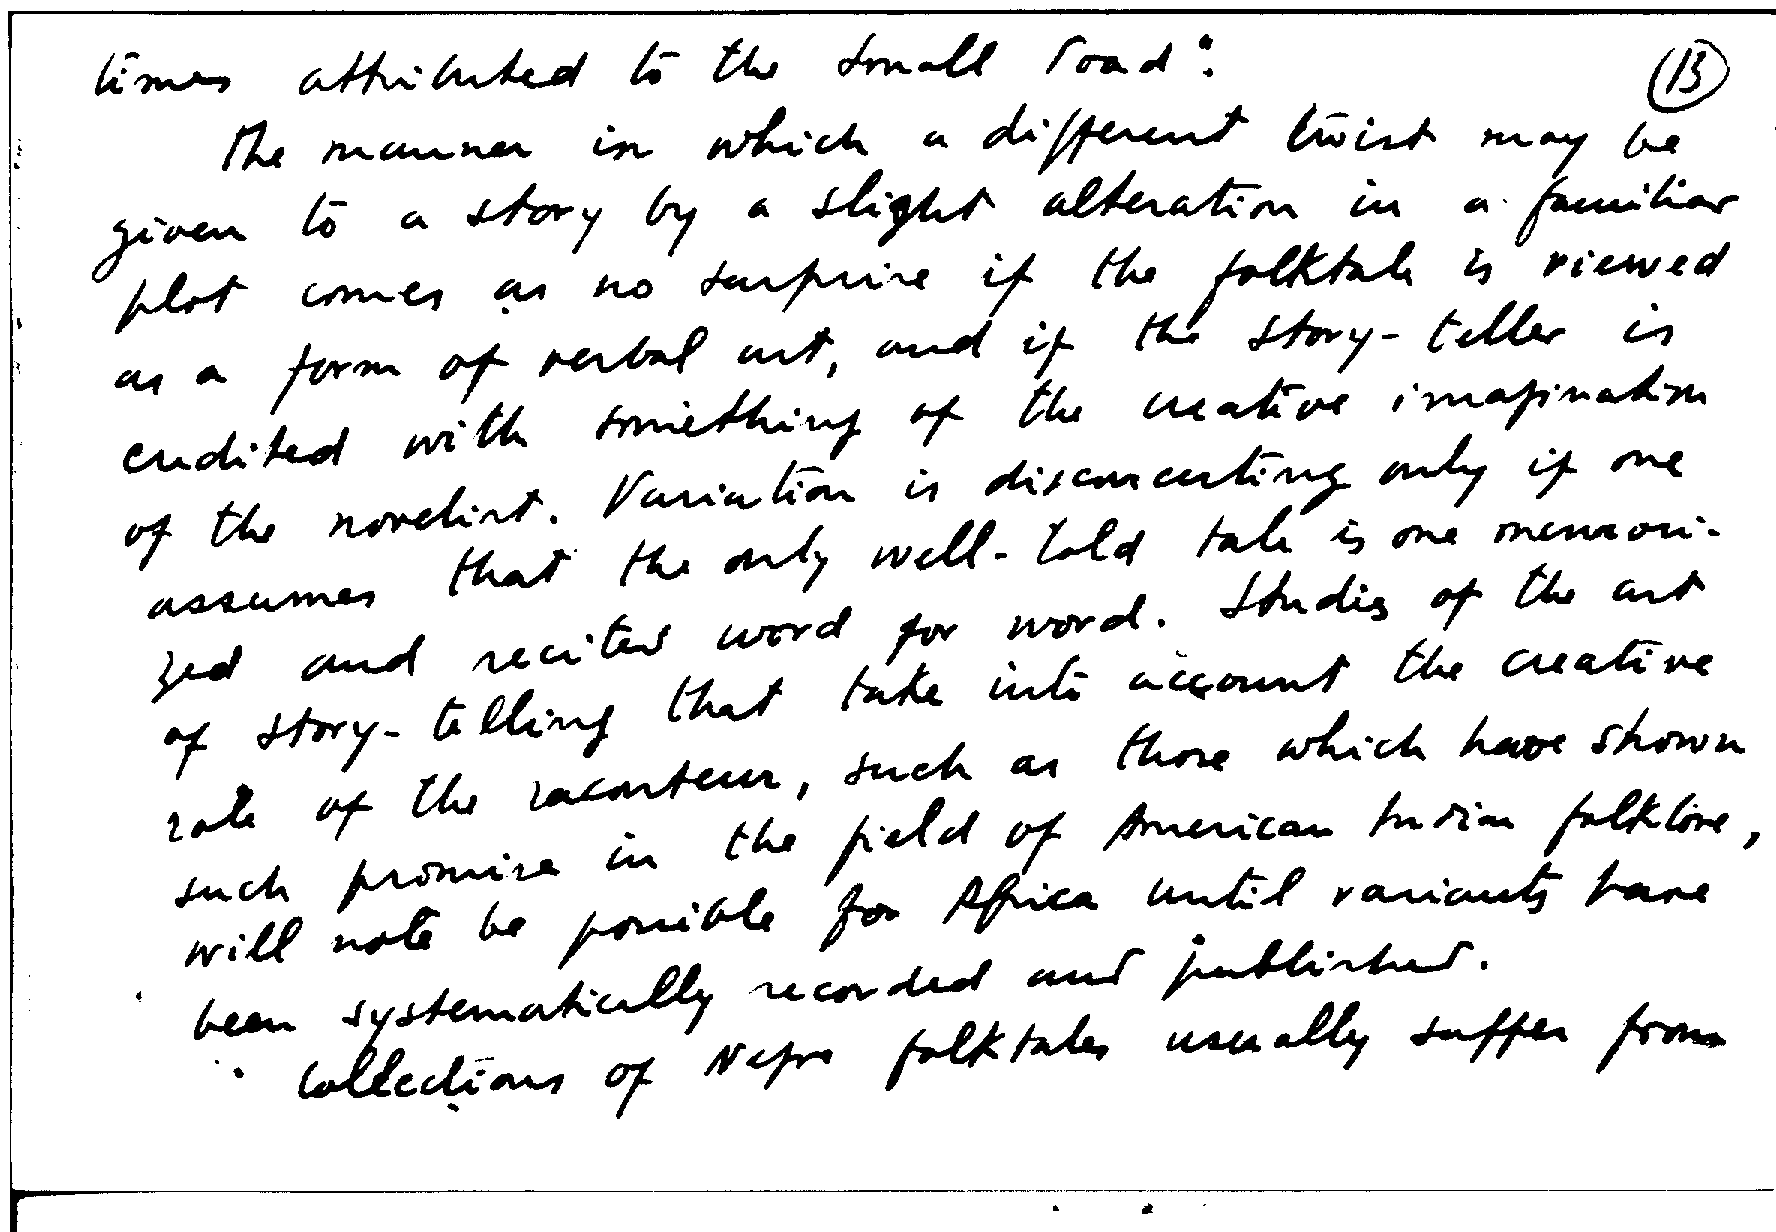 times attributed to the small toad".
(13)
The manner in which a different twist may be
given to a story by a slight alteration in a familiar
plot comes as no surprise if the folktale is viewed
as a form of verbal art, and if the story-teller is
credited with something of the creative imagination
of the novelist. Variation is disconcerting only if one
assumes that the only well-told tale is one memori-
zed and recited word for word. Studies of the art
of story-telling that take into account the creative
role of the raconteur, such as those which have shown
such promise in the field of American Indian folklore,
will note be possible for Africa until variants have
been systematically recorded and published.
Collections of Negro folktales usually suffer from